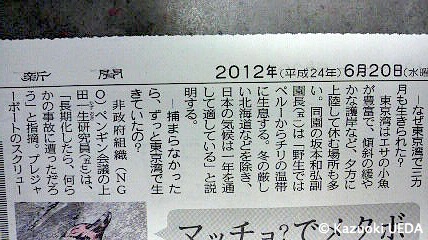 新聞 2012年(平成24年)6月20日(水曜
―なぜ東京湾で三カ
月も生きられた？
東京湾はエサの小魚
が豊富で、傾斜の緩や
かな護岸など、夕方に
上陸して休む場所も多
い。同園の坂本和弘副
園長(五七)は「野生では
ペルーからチリの温帯
に生息する。冬の厳し
い北海道などを除き、
日本の気候は一年を通
して適している」と説
明する。
―捕まらなかった
ら、ずっと東京湾で生
きていたの？
非政府組織（NG
O）ペンギン会議の上
田一生研究員(五七)は、
「長期化したら、何ら
かの事故に遭っただろ
う」と指摘。プレジャ
ーボートのスクリュー
マッチョ?でメタボ
© Kazuoki UEDA